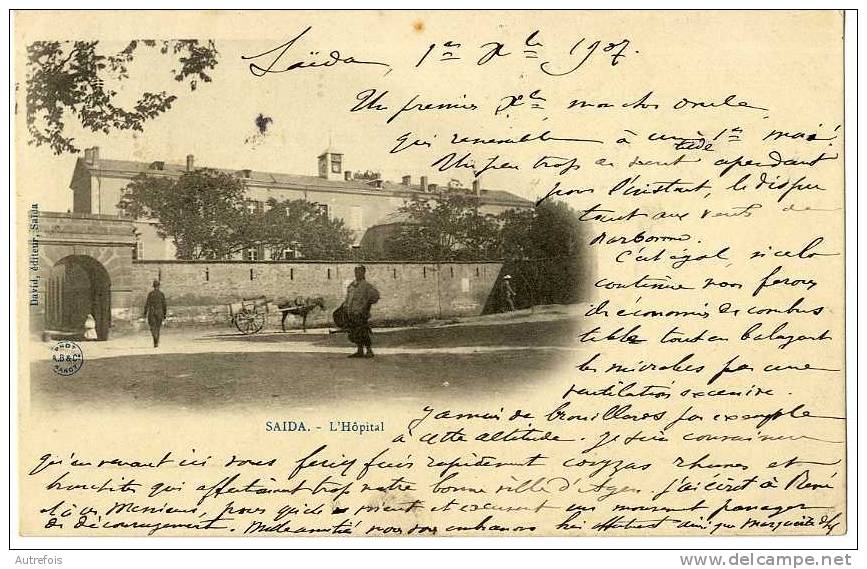 Saïda, 1er Xbre 1907.
Un premier Xbre mon cher
qui ressemble à un 1er mai!
tiède
Un peu trop de vent cependant
pour l'instant, le dispu
tout aux vents de
Narbonne.
C'est égal, si cela
continue nous ferons
des économies de combus
tible tout en balayant
les microbes par une
ventilation excessive.
Jamais de brouillards par exemple
à cette altitude. Je suis convaincu
qu'en venant ici vous feriez fuir rapidement coryzas rhumes et
bronchites qui affectionnent trop notre bonne ville d'Agen. J'ai écrit à René
et à ces Messieurs, pour qu'ils excusent un moment passager
de découragement. nous vous embrassons bien affectueusement ainsi que Marguerite
David, éditeur, Saïda
A.B & Cie
NANCY
SAIDA. - L'Hôpital
Autrefois
delcampe.net